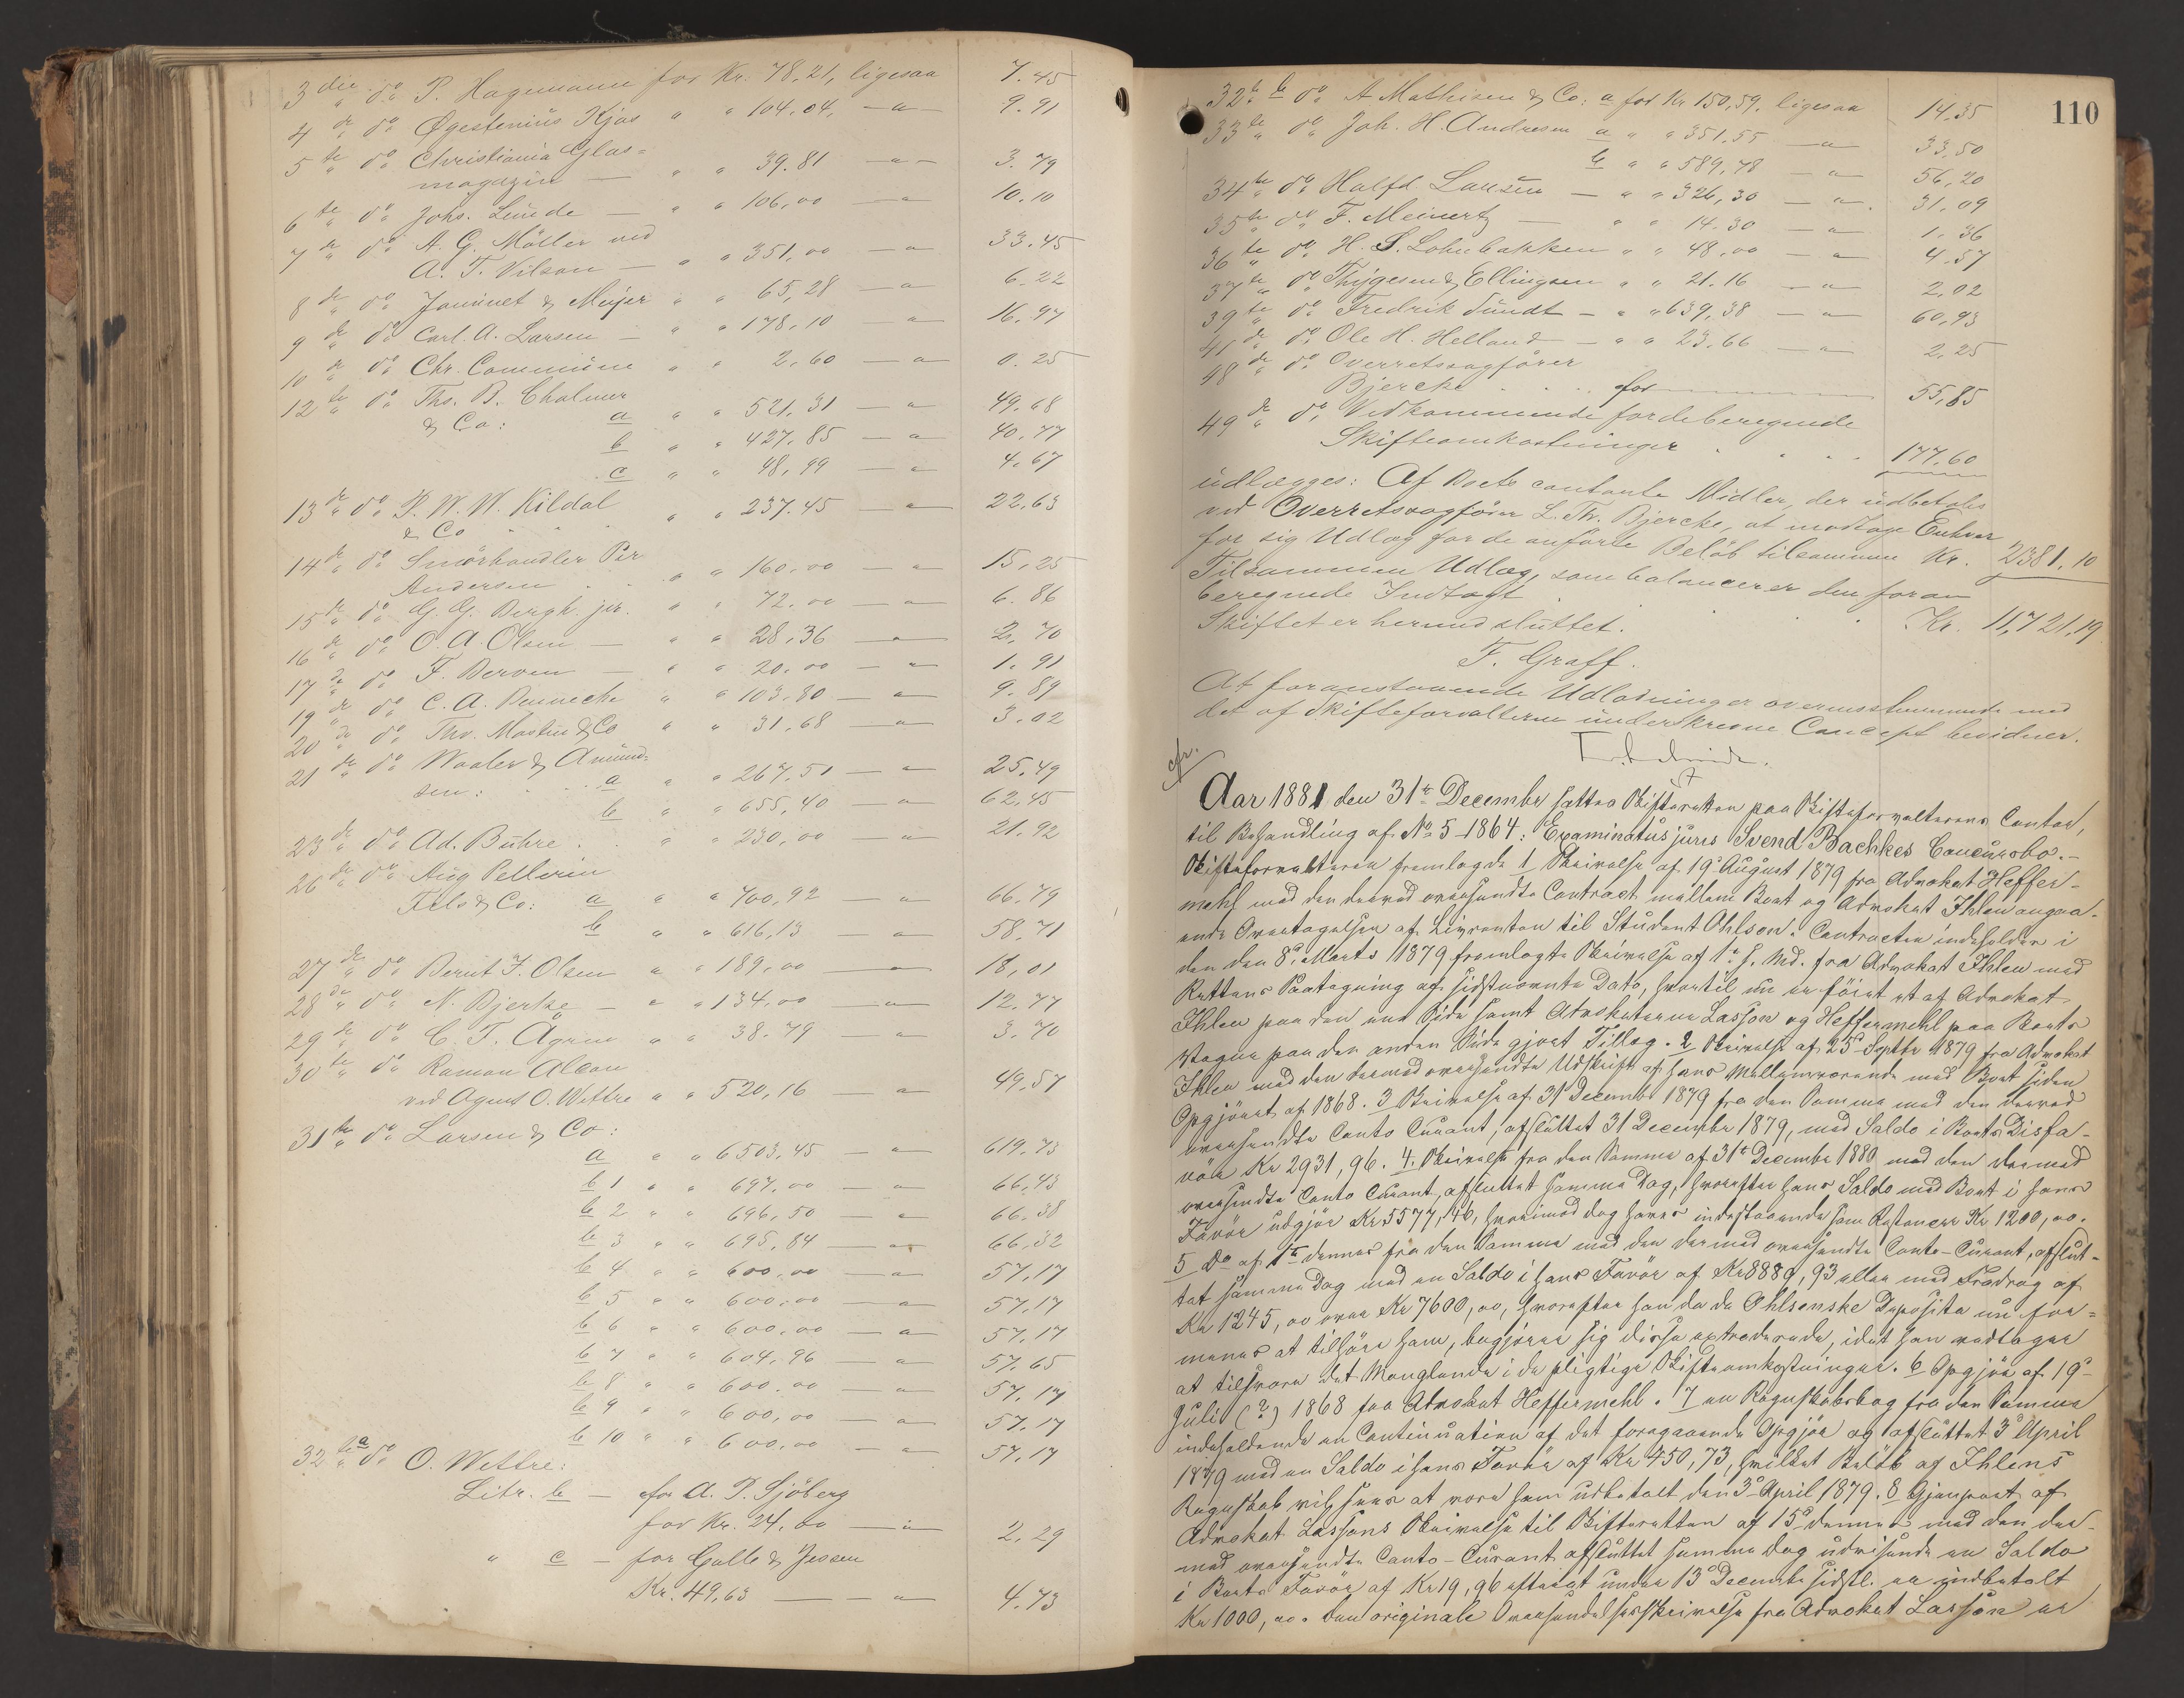 3die " do P. Hagemann for Kr. 78.21, ligesaa 7.45
4de " do Øgestenius Kjos " " 104.04, — " — 9.91
5te " do Christiania Glas=
magazin — " " 39.81 — " — 3.79
6te " do Johs. Lunde — " " 106,00 — " — 10.10
7de " do A. G. Möller ved
A. T. Nilson — " " 351,00 — " — 33.45
8de " do Jaminet & Meijer " " 65,28 — " — 6.22
9de " do Carl. A. Larsen — " " 178,10 — " — 16.97
10de " do Chr. Commune " " 2,60 — " — 0.25
12te " do Ths. B. Chalmer
& Co: a " " 521,31 — " — 49.68
b " " 427,85 — " — 40.77
c " " 48,99 — " — 4.67
13de " do P. W. W. Kildal
& Co " " 237.45 — " — 22.63
14de " do Smörhandler Per
Andersen . . " " 160,00 — " — 15,25
15de " do G. G. Bergh. jr. " " 72.00 — " — 6.86
16de " do O. A. Olsen — " " 28,36 — " — 2,70
17de " do F. Berven — " " 20.00 — " — 1.91
19de " do C. A. Benneche " " 103.80 — " — 9.89
20de " do Thv. Mostue & Co " " 31,68 — " — 3.02
21de " do Waaler & Amund=
sen: . . . a " " 267,51 — " — 25.49
b " " 655,40 — " — 62,45
23de " do Ad. Buhre . . " " 230,00 — " — 21.92
26de " do Aug Pellerin
Fils & Co: a " " 700,92 — " — 66.79
b " " 616,13 — " — 58.71
27de " do Berut J. Olsen " " 189,00 — " — 18,01
28de " do N. Bjerke — " " 134,00 — " — 12.77
29de " do C. T. Agren " " 38.79 — " — 3.70
30te " do Ramon Alcon
ved Agent O. Wettre " " 520,16 — " — 49,57
31te " do Larsen & Co:
a " " 6503,45 — " — 619.73
b 1 " " 697,00 — " — 66,43
b 2 " " 696,50 — " — 66.38
b 3 " " 695,84 — " — 66,32
b 4 " " 600,00 — " — 57,17
b 5 " " 600,00 — " — 57.17
b 6 " " 600,00 — " — 57.17
b 7 " " 604,96 — " — 57.65
b 8 " " 600,00 — " — 57.17
b 9 " " 600,00 — " — 57.17
b 10 " " 600,00 — " — 57.17
32te a do O. Wettre:
Litr. b — for A. P. Sjöberg
for Kr. 24,00 — " — 2,29
" c — for Galle & Jessen
Kr. 49,63 — — " — 4.73
110
32te b do A Mathisen & Co: a for Kr 150,59. ligesaa 14,35
33te " do Joh. H. Andresen a " " 351.55 — " — 33,50
b " " 589,78 — " — 56,20
34te do Halfd. Larsen — " " 326,30 — " — 31,09
35te " do F. Meinertz — " " 14.30 — " — 1.36
36te " do H. S. Lohnbakken " " 48,00 — " — 4.57
37te " do Thygesen & Ellingsen " " 21.16 — " — 2,02
39te " do Fredrik Sundt — " " 639,38 — " — 60,93
41de " do Ole H. Helland — " " 23,66 — " — 2,25
48de " do Overretssagförer
Bjercke . . . for — 55,85
49de " do Vedkommende fordeberegnede
Skifteomkostninger . . . . 177,60
udlægges: Af Boets contante Midler, der udbetales
ved Overretssagförer L. Th. Bjercke, at modtage Enhver
for sig Udlæg for de anförte Belöb tilsammen Kr. 2381.10
Tilsammen Udlæg, som balancerer den foran
beregnede Indtægt . . . . Kr. 11,721,19
Skiftet er hermed sluttet.
F. Graff.
At foranstaaende Udlodninger overensstemmende med
det af Skifteforvalteren underskrevne Concept bevidner.
Aar 1881 den 31te December sattes Skifteretten paa Skifteforvalterens Contor,
til Behandling af No 5-1864: Examinatus juris Svend Bachkes Concursbo.-
Skifteforvalteren fremlagde 1 Skrivelse af 19de August 1879 fra Advokat Heffer-
mehl med den derved oversendte Contract mellem Boet og Advokat Ihlen angaa-
ende Overtagelsen af Livrenten til Student Ohlson. Contracten indeholdes i
den den 8de Marts 1879 fremlagte Skrivelse af 1te s. Md. fra Advokat Ihlen med
Rettens Paategning af sidstnævnte Dato, hvortil nu er föiet et af Advokat
Ihlen paa den ene Side samt Advokaterne Lasson og Heffermehl paa Boets
Vegne paa den anden Side gjort Tillæg. 2 Skrivelse af 25de Septbr 1879 fra Advokat
Ihlen med den dermed oversendte Udskrift af hans Mellemværende med Boet siden
Opgjöret af 1868. 3 Skrivelse af 31 Decembr 1879 fra den Samme med den derved
oversendte Conto Curant, afsluttet 31 December 1879, med Saldo i Boets Disfa-
vör Kr 2931,96. 4. Skrivelse fra den Samme af 31te December 1880 med den dermed
oversendte Conto Curant, afsluttet samme Dag, hvorefter hans Saldo med Boet i hans
Favör udgjör Kr 5577,46, hvorimod dog haves indestaaende som Restancer Kr 1200,00.
5 Do af 1te dennes fra den Samme med den dermed oversendte Conto-Curant, afslut-
tet samme Dag med en Saldo i hans Favör af Kr 8889,93 eller med Fradrag af
Kr 1245,00 over Kr 7600,00, hvorefter han da de Ohlsenske Deposita nu for=
menes at tilhöre ham, begjærer sig disse extraderede, idet han vedtager
at tilsvare det Manglende i de pligtige Skifteomkostninger. 6 Opgjör af 19de
Juli (?) 1868 fra Advokat Heffermehl. 7 en Regnskabsbog fra den Samme
indeholdende en Continuation af det foregaaende Opgjör og afsluttet 3de April
1879 med en Saldo i hans Favör af Kr 450,73, hvilket Belöb af Ihlens
Regnskab vil sees at være ham udbetalt den 3de April 1879. 8 Gjenpart af
Advokat Lassons Skrivelse til Skifteretten af 15de dennes med den der-
med oversendte Conto-Curant afsluttet samme Dag udvisende en Saldo
i Boets Favör af Kr 19,96 efterat under 13de December sidstl. er indbetalt
Kr 1000,00. Den originale Oversendelsesskrivelse fra Advokat Lasson er